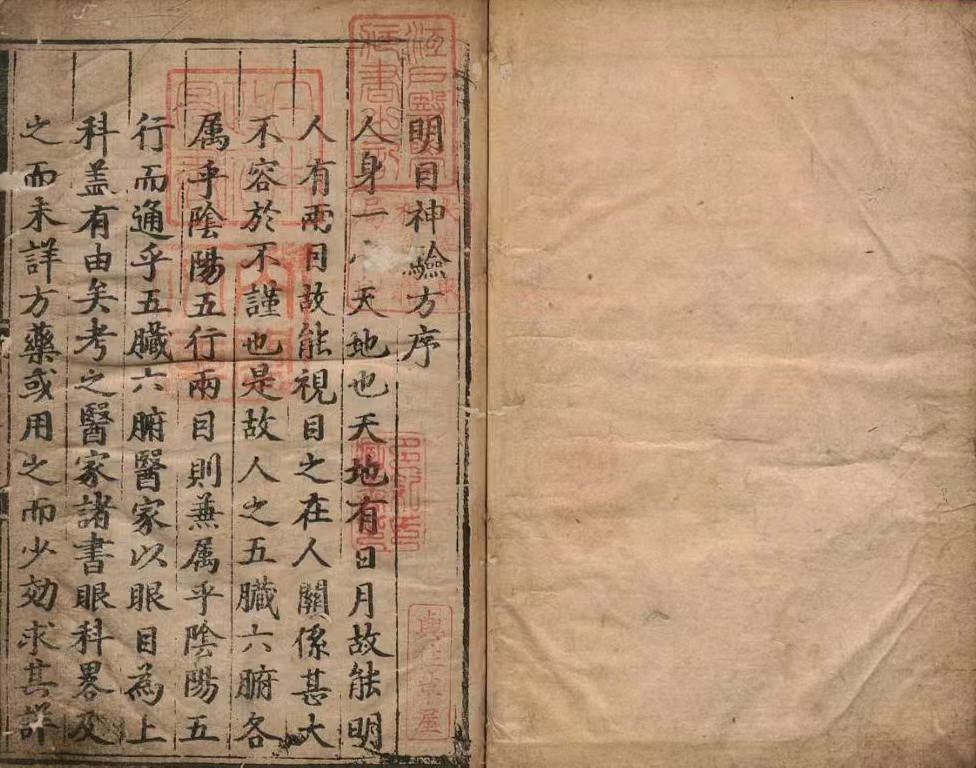 明目神驗方序
人身一小天地也天地有日月故能明
人有兩目故能視目之在人關係甚大
不容於不謹也是故人之五臟六腑各
属乎陰陽五行兩目則兼属乎陰陽五
行而通乎五臟六腑醫家以眼目為上
科盖有由矣考之醫家諸書眼科畧及
之而未詳方藥或用之而少効求其詳